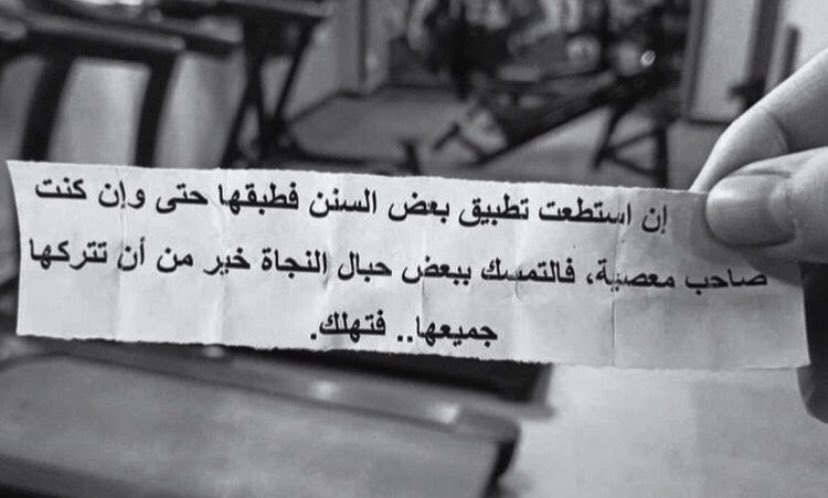 إن استطعت تطبيق بعض السنن فطبقها حتى وإن كنت
صاحب معصية، فالتمسك ببعض حبال النجاة خير من أن تتركها
جميعها.. فتهلك.